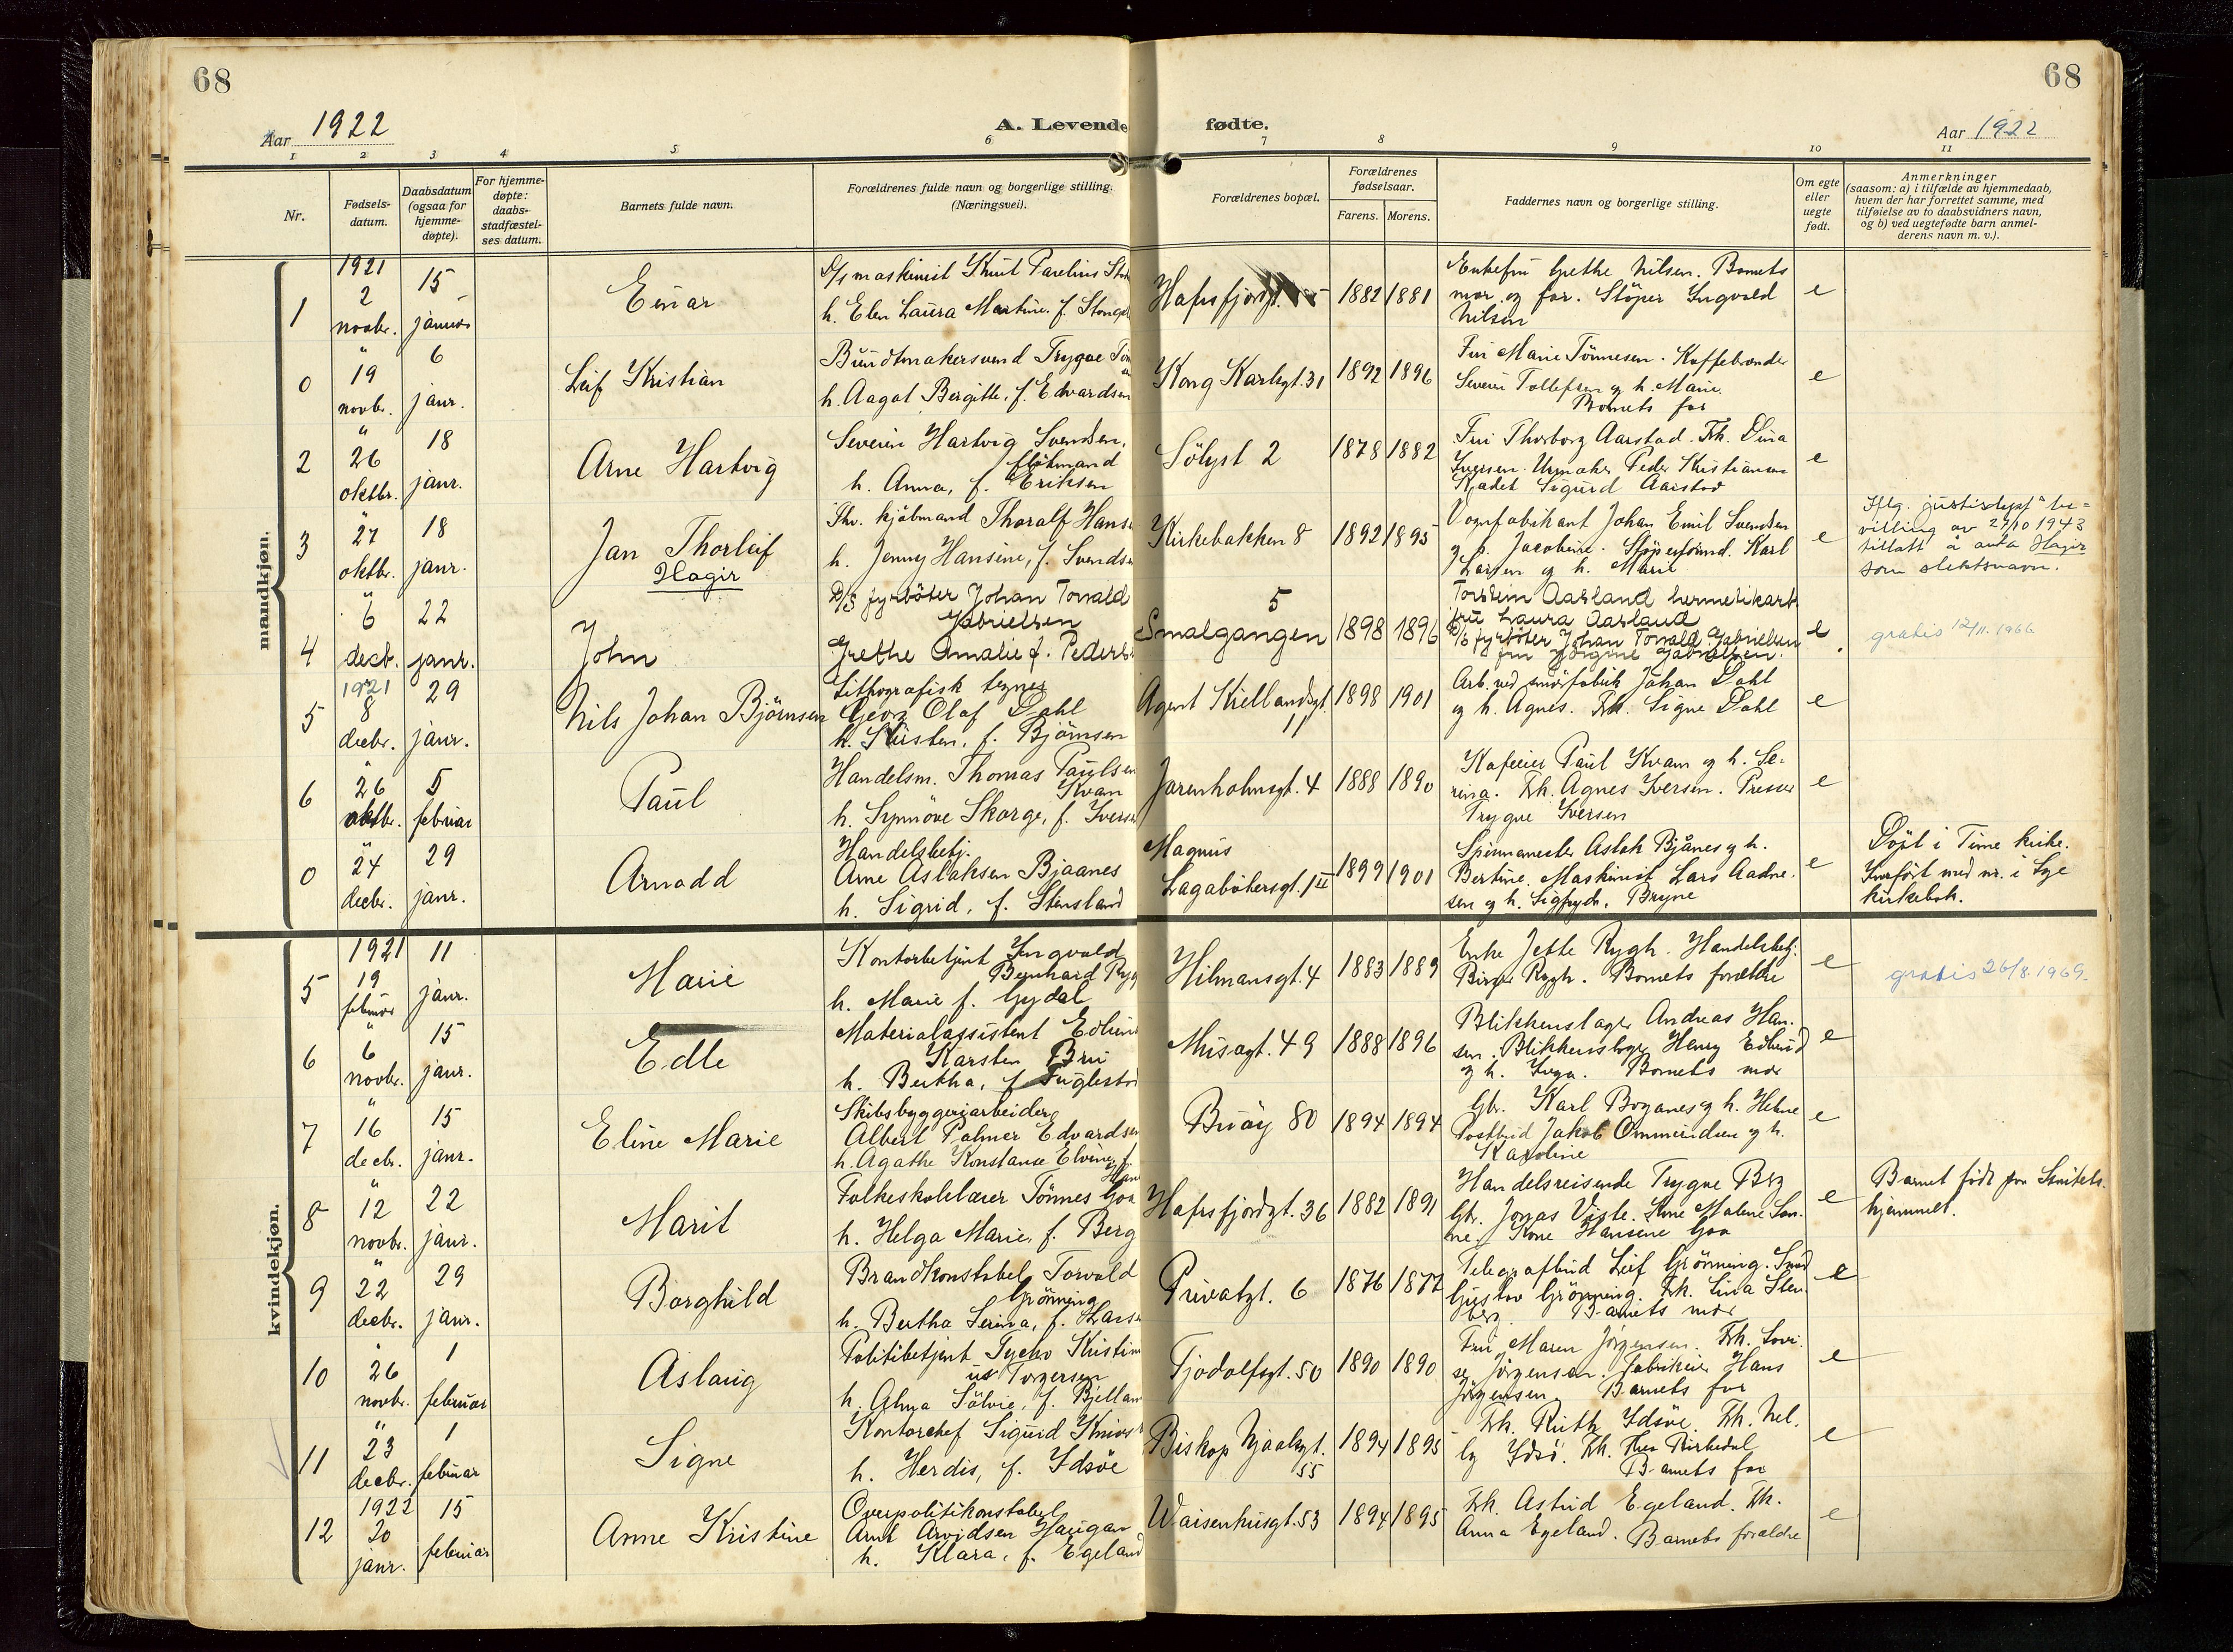 68
68
Aar 1922
A. Levende fødte.
Aar 1922
1 2 3 4 5 6 7 8 9 10 11
Nr.
Fødsels-
datum.
Daabsdatum
(ogsaa for
hjemme-
døpte).
For hjemme-
døpte:
daabs-
stadfæstel-
ses datum.
Barnets fulde navn.
Forældrenes fulde navn og borgerlige stilling.
(Næringsvei).
Forældrenes bopæl.
Forældrenes
fødselsaar.
Farens. Morens.
Faddernes navn og borgerlige stilling.
Om egte
eller
uegte
født.
Anmerkninger
(saasom: a) i tilfælde av hjemmedaab,
hvem der har forrettet samme, med
tilføielse av to daabsvidners navn,
og b) ved uegtefødte barn anmel-
derens navn m. v.).
mandkjøn.
1
1921
2
novbr.
15
januar
Einar
D/s maskinist Knut Parelius
h. Elen Laura Martine, f.
Hafrsfjordgt.
1882 1881
Enkefru Grethe Nilsen. Barnets
mor og far. Støper Ingvald
Nilsen
e
0
" 19
novbr.
6
janr.
Leif Kristian
Buntmakersvend Trygve
h. Aagot Bergitte, f. Edvardsen
Kong Karlsgt. 31
1892 1896
Fru Marie Tönnesen. Kaffebrænder
Severin Tollefsen og h. Marie.
Barnets far
e
2
" 26
oktbr.
18
janr.
Arne Hartvig
Severin Hartvig Svendsen,
h. Anna, f. Eriksen
Sölyst 2
1878 1882
Fru Thorborg Aarstad. Frk. Dina
Iversen. Urmaker Peder Kristiansen
Kadet Sigurd Aarstad
e
3
" 27
oktbr.
18
janr.
Jan Thorleif
Hagir
kjöbmand Thoralf
h. Jenny Hansine, f.
Kirkebakken 8
1892 1895
Vognfabrikant Johan Emil Svendsen
og h. Jacobine. Støperformd. Karl
Larsen og h. Marie
e
Iflg. justisdept^s be-
villing av 27/10 1943
tillatt å anta Hagir
som slektsnavn.
4
" 6
decb.
22
janr.
John
D/S fyrböter Johan Torvald
Gabrielsen
Grethe Amalie f.
Smalgangen 5
1898 1896
Torstein Aasland hermetikarb.
fru Laura Aasland
D/S fyrböter Johan Torvald Gabrielsen
fru Jörgine Gabrielsen.
e
gratis 12/11. 1966
5
1921
8
decbr.
29
janr.
Nils Johan Björnsen
Lithografisk tegner
Georg Olaf Dahl
h. Kirsten, f. Björnsen
Agent Kiellandsgt.
11
1898 1901
Arb. ved smörfabrik Johan Dahl
og h. Agnes. Frk. Signe Dahl
e
6
" 26
oktbr.
5
februar
Paul
Handelsm. Thomas Paulsen
Kvam
h. Synnöve Skorge, f.
Jarenholmsgt. 4
1888 1890
Kafeeier Paul Kvam og h. Se-
rina. Frk. Agnes Iversen. Presser
Trygve Iversen
e
0
" 24
decbr.
29
janr.
Arnodd
Handelsbetj.
Arne Aslaksen Bjaanes
h. Sigrid, f. Stensland
Magnus
Lagabötersgt. 1 II
1899 1901
Spinnemester Aslak Bjånes og h.
Bertine. Maskinist Lars Aadne-
sen og h. Sigfryd, Bryne
e
Döpt i Time kirke.
Innfört med nr. i Lye
kirkebok.
kvindekjøn.
5
1921
19
februar
11
janr.
Marie
Kontorbetjent Ingvald
Bernhard
h. Marie f. Gydal
Hilmansgt. 4
1883 1889
Enke Jette Rygh. Handelsbetj.
Birger Rygh. Barnets forældre
e
gratis 26/8. 1969.
6
" 6
novbr.
15
janr.
Edle
Materialassistent
Karsten Bru
h. Bertha, f.
Musagt. 49
1888 1896
Blikkenslager Andreas Han-
sen. Blikkenslager Henry Edlund
og h. Inga. Barnets mor
e
7
" 16
decbr.
15
janr.
Eline Marie
Skibsbyggeriarbeider
Albert Palmer Edvardsen
h. Agathe Konstanse Elvine, f.
Buöy 80
1894 1894
Gbr. Karl Boganes og h. Helene
Postbud Jakob Ommundsen og h.
Karoline
e
8
" 12
novbr.
22
janr.
Marit
Folkeskolelærer Tönnes Goa
h. Helga Marie, f. Berg
Hafrsfjordgt. 36
1882 1891
Handelsreisende Trygve Berg
Gbr. Jonas Viste. Kone Malene San-
ne. Kone Hansine Goa
e
Barnet födt paa Sanitets-
hjemmet.
9
" 22
decbr.
29
janr.
Borghild
Brandkonstabel Torvald
Grönning
h. Bertha Serina, f.
Privatgt. 6
1876 1877
Telegrafbud Leif Grönning. Smed
Gustav Grönning. Frk. Lina Sten-
berg. Barnets mor
e
10
" 26
novbr.
1
februar
Aslaug
Politibetjent Tycho Kristin
us Torgersen
h. Alma Sölvie, f.
Tjodolfsgt. 50
1890 1890
Fru Maren Jörgensen. Frk. Lovi-
se Jörgensen. Fabrikeier Hans
Jörgensen. Barnets far
e
11
" 23
decbr.
1
februar
Signe
Kontorchef Sigurd
h. Herdis, f. Idsöe
Biskop Njaalsgt.
55
1894 1895
Frk. Ruth Idsöe. Frk. Nel-
ly Idsö. Frk. Thea Kirkedal
Barnets far
e
12
1922
20
janr.
15
februar
Anne Kristine
Overpolitikonstabel
Arnt Arvidsen Haugan
h. Klara, f. Egeland
Waisenhusgt. 53
1894 1895
Frk. Astrid Egeland. Frk.
Anna Egeland. Barnets forældre
e